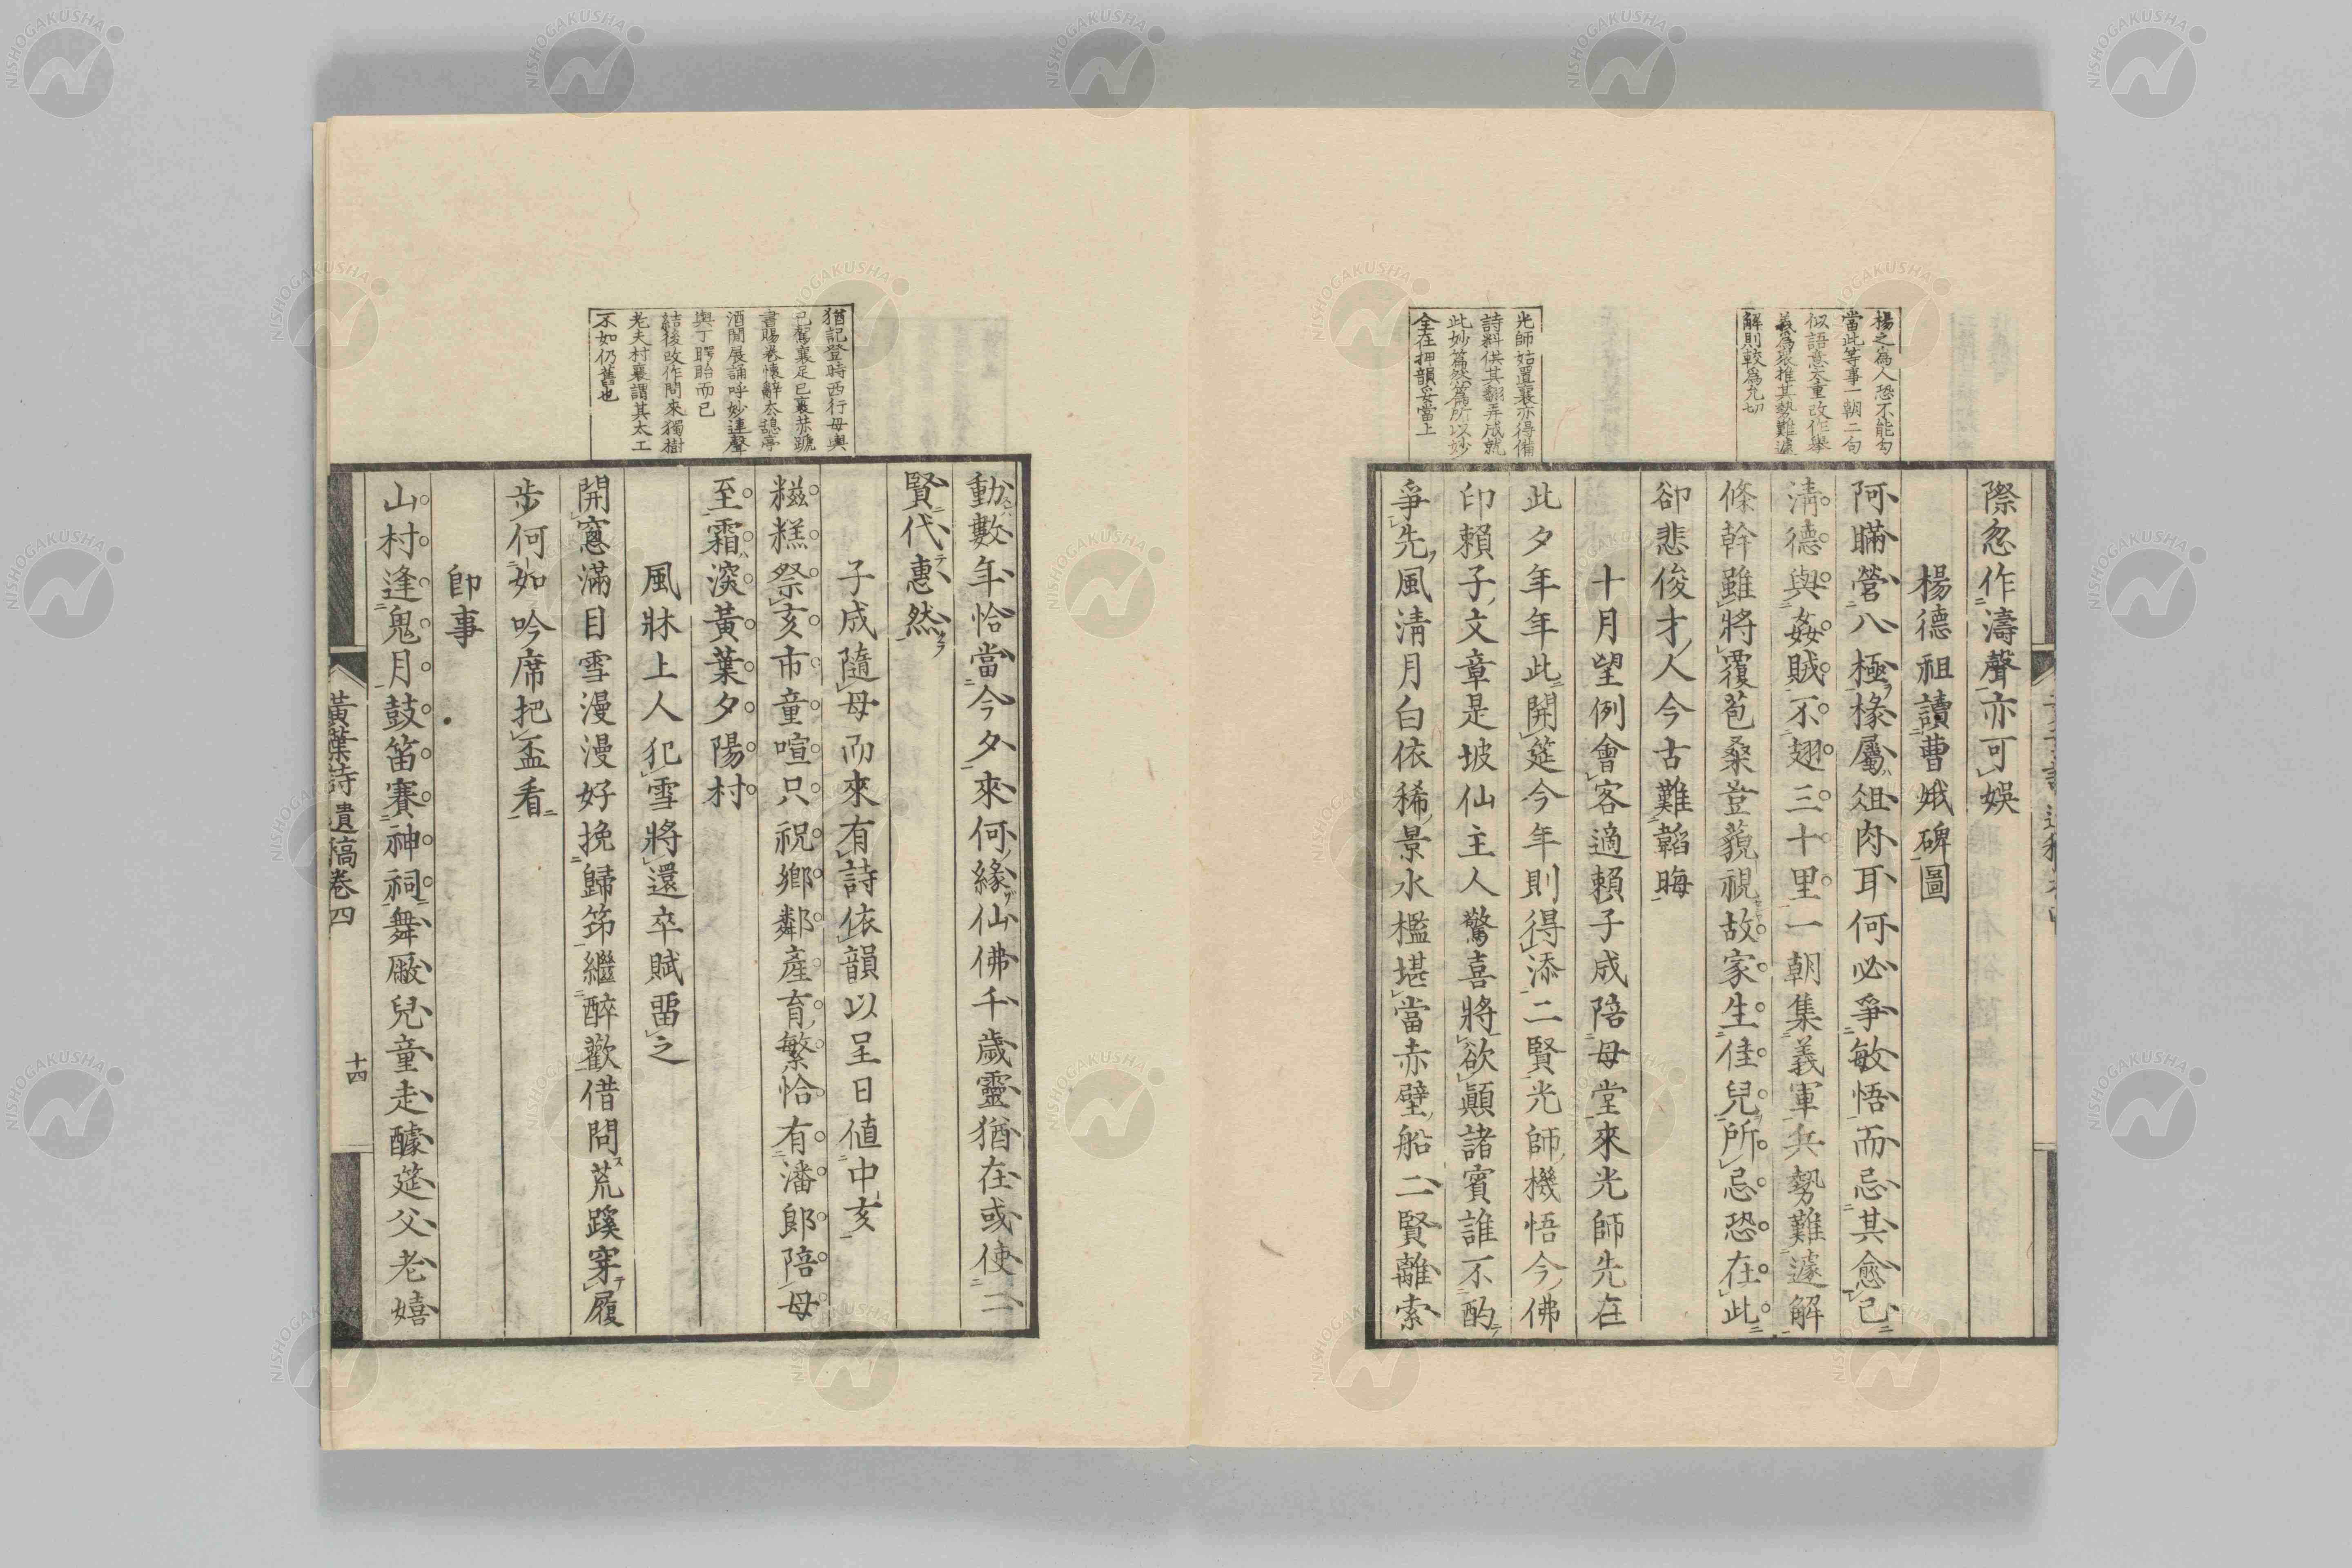 楊之爲人恐不能勾
當此等事一朝二句
似語意太重改作擧
義爲衆推其勢難遽
解則較爲允切
光師姑置襄亦得備
詩料供其翻弄成就
此妙篇然篇所以妙
全在押韻妥當上
際忽作濤聲亦可娯
楊德祖讀曹娥碑圖
阿瞞營八極椽屬俎肉耳何必爭敏悟而忌其愈己
淸德與姦賊不翅三十里一朝集義軍兵勢難遽解
條幹雖將覆苞桑豈藐視故家生佳兒所忌恐在此
卻悲俊才人今古難韜晦
十月望例會客適賴子成陪母堂來光師先在
此夕年年此開筵今年則得添二賢光師機悟今佛
印賴子文章是坡仙主人驚喜將欲顚諸賓誰不酌
爭先風淸月白依稀景水檻堪當赤壁船二賢離索
猶記登時西行母輿
已駕襄足已裹恭號
書賜卷懷辭去憩亭
酒間展誦呼妙連聲
輿丁瞪眙而已
結後改作問來獨樹
老夫村襄謂其太工
不如仍舊也
動數年恰當今夕來何緣仙佛千歲靈猶在或使二
賢代惠然
子成隨母而來有詩依韻以呈日値中亥
糍糕祭亥市童喧只祝鄕鄰產育繁恰有潘郞陪母
至霜深黃葉夕陽村
風牀上人犯雪將還卒賦畱之
開窓滿目雪漫漫好挽歸笻繼醉歡借問荒蹊穿履
步何如吟席把盃看
卽事
山村逢鬼月鼓笛賽神祠舞厰兒童走醵筵父老嬉
黃葉詩遺稿卷四
十四